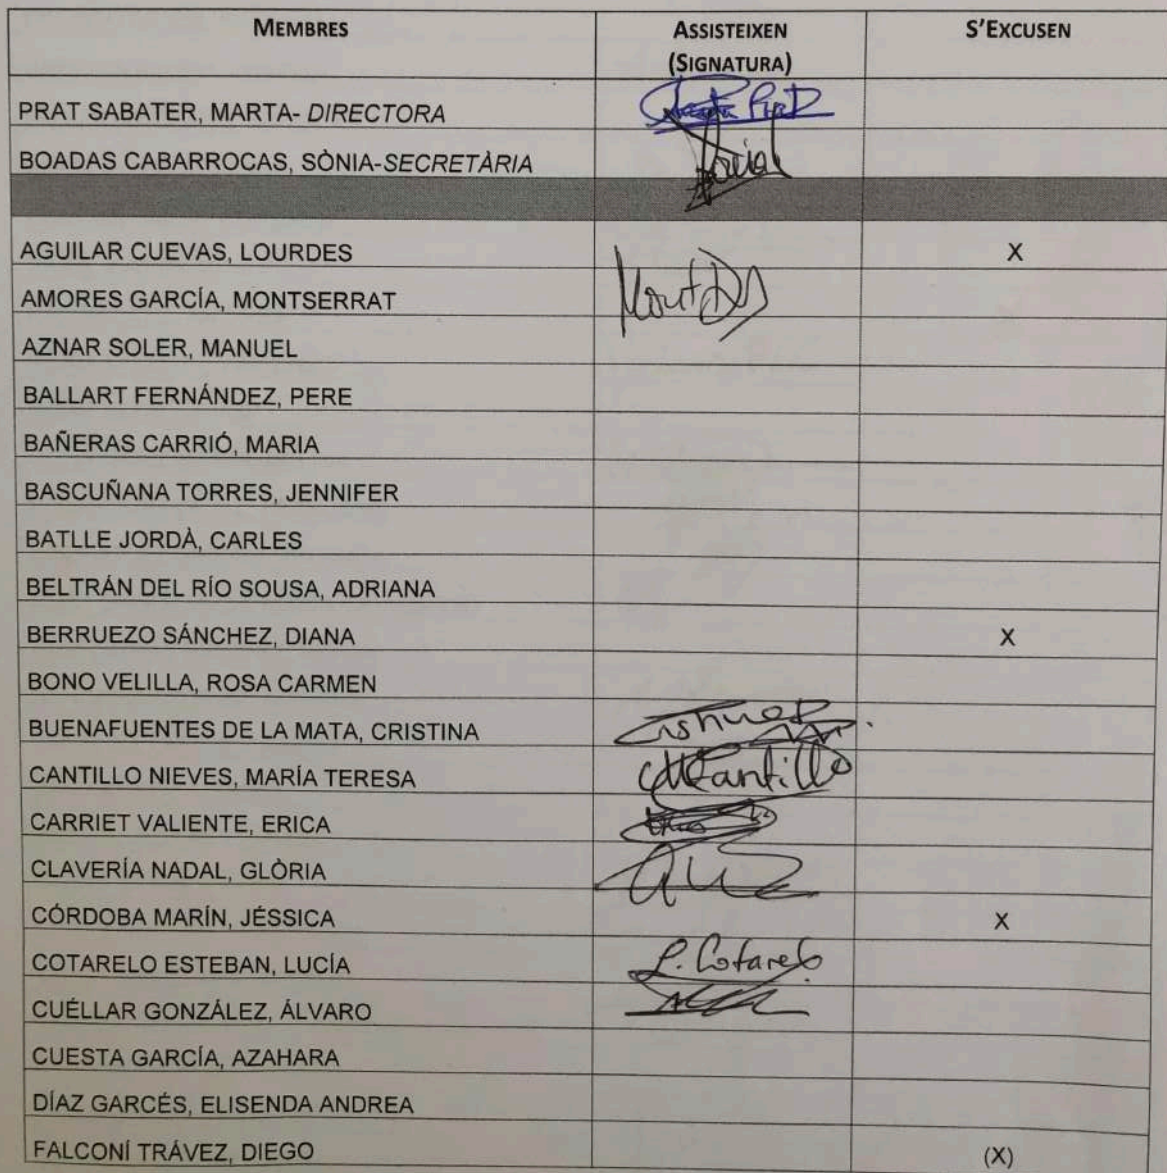 MEMBRES ASSISTEIXEN S'EXCUSEN
(SIGNATURA)
PRAT SABATER, MARTA- DIRECTORA Marta Prat
BOADAS CABARROCAS, SÒNIA-SECRETÀRIA
AGUILAR CUEVAS, LOURDES X
AMORES GARCÍA, MONTSERRAT
AZNAR SOLER, MANUEL
BALLART FERNÁNDEZ, PERE
BAÑERAS CARRIÓ, MARIA
BASCUÑANA TORRES, JENNIFER
BATLLE JORDÀ, CARLES
BELTRÁN DEL RÍO SOUSA, ADRIANA
BERRUEZO SÁNCHEZ, DIANA X
BONO VELILLA, ROSA CARMEN
BUENAFUENTES DE LA MATA, CRISTINA
CANTILLO NIEVES, MARÍA TERESA MCantillo
CARRIET VALIENTE, ERICA
CLAVERÍA NADAL, GLÒRIA
CÓRDOBA MARÍN, JÉSSICA X
COTARELO ESTEBAN, LUCÍA L. Cotarelo
CUÉLLAR GONZÁLEZ, ÁLVARO
CUESTA GARCÍA, AZAHARA
DÍAZ GARCÉS, ELISENDA ANDREA
FALCONÍ TRÁVEZ, DIEGO (X)